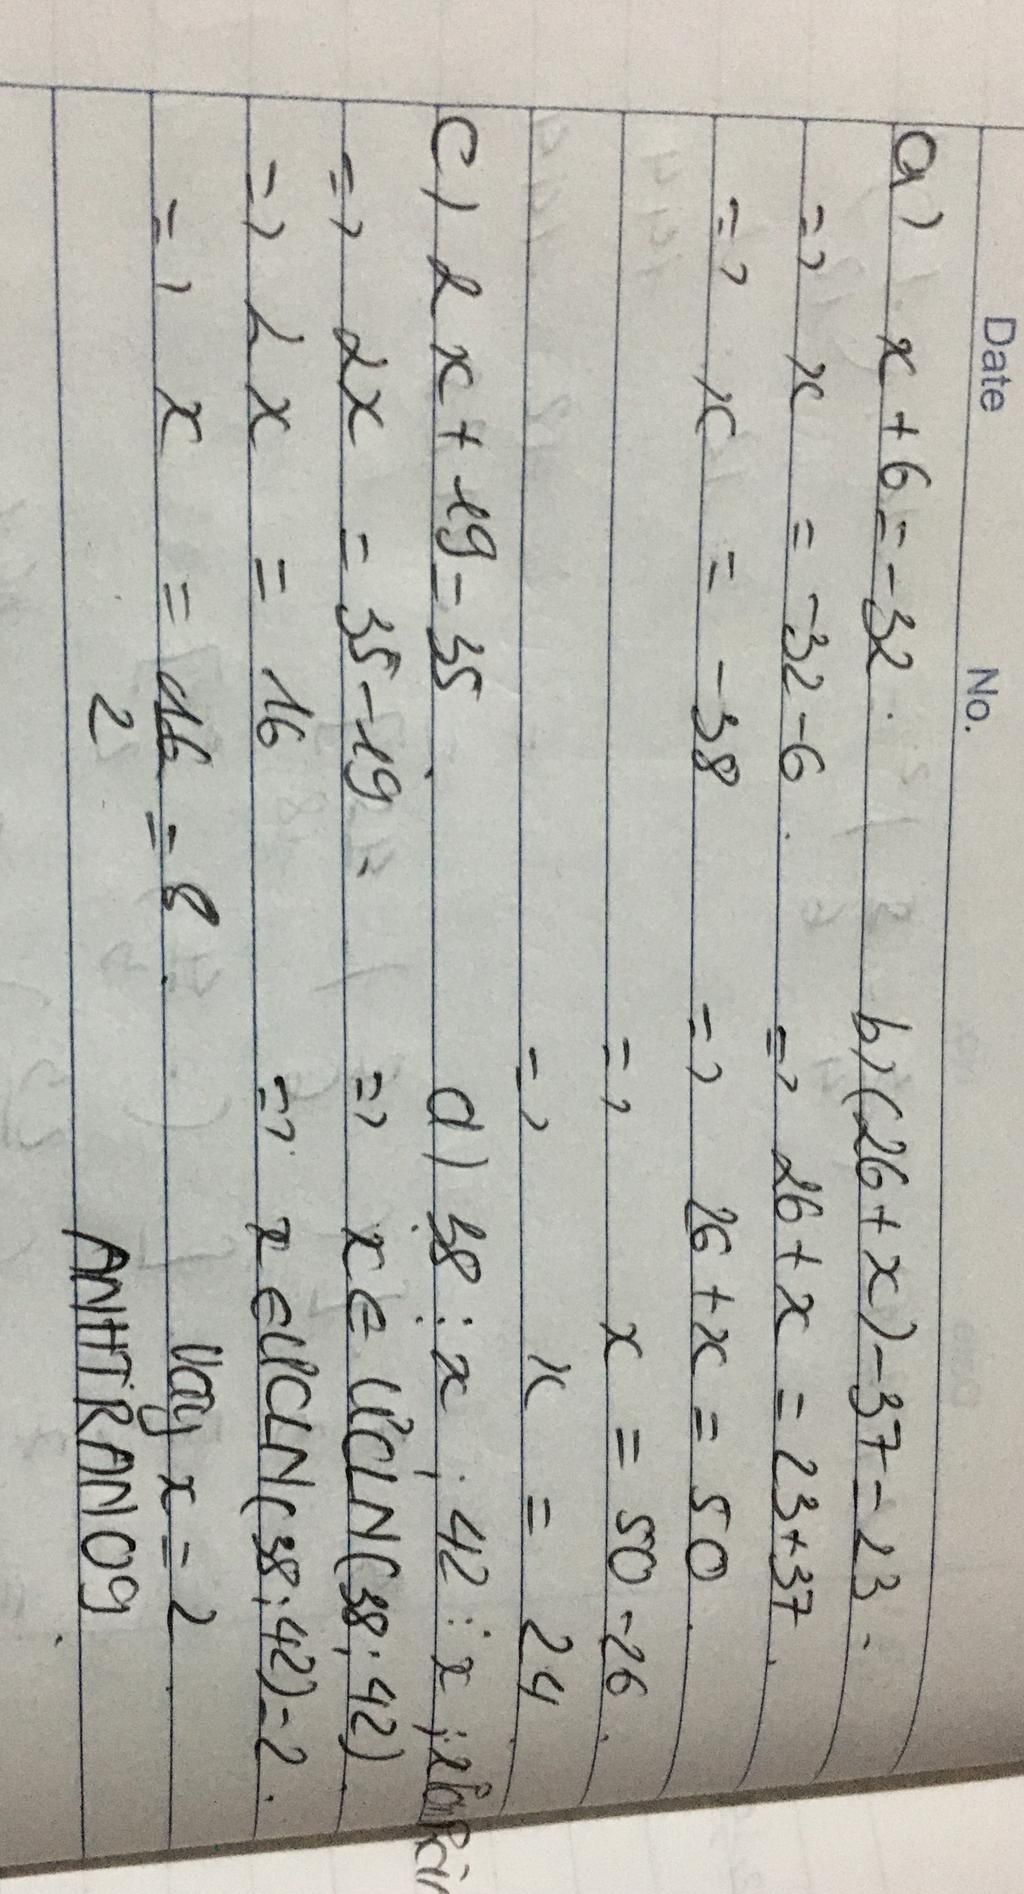 Date No.
a) x + 6 = -32.
=> x = -32 - 6.
=> x = -38
b) (26 + x) - 37 = 13.
=> 26 + x = 13 + 37.
=> 26 + x = 50.
=> x = 50 - 26.
=> x = 24.
c) 2x + 19 = 35
=> 2x = 35 - 19.
=> 2x = 16
=> x = 16/2 = 8.
d) 38 ⋮ x ; 42 ⋮ x ;
=> x ∈ ƯCLN(38; 42).
=> x ∈ ƯCLN(38; 42) = 2.
Vậy x = 2.
ANHTRAN09